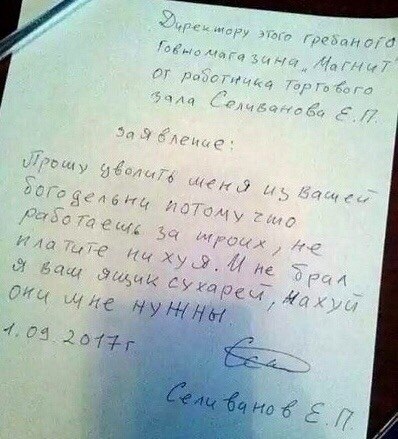 Директору этого гребаного
Говномагазина „Магнит"
от работника торгового
зала Селиванова Е.П.
заявление:
Прошу уволить меня из вашей
богодельни потому что
работаешь за троих, не
платите ни хуя. И не брал
я ваш ящик сухарей, нахуй
они мне нужны.
1.09.2017г
Селиванов Е.П.